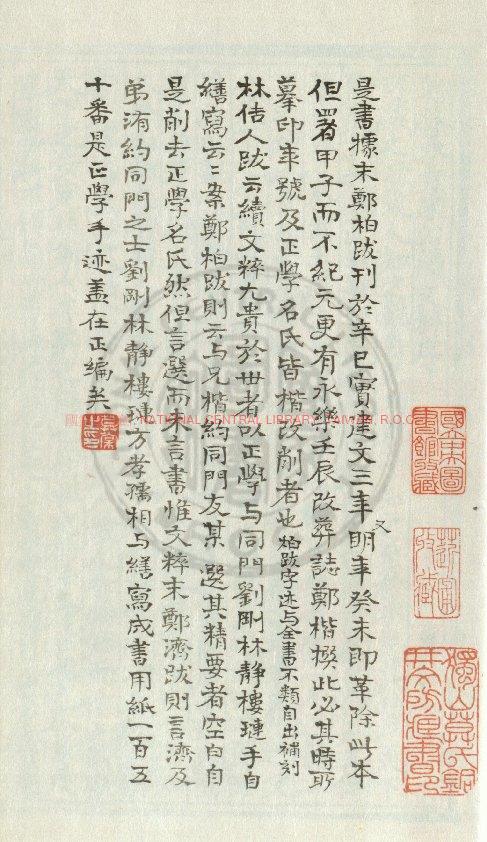 是書據末鄭柏跋刊於辛巳實建文三年又明年癸未即革除此本
但署甲子而不紀元更有永樂壬辰改葬誌鄭楷撰此必其時所
摹印年號及正學名氏皆楷改削者也柏跋字迹与全書不類自出補刻
林佶人跋云續文粹尤貴於世者以正學与同門劉剛林靜樓璉手自
繕寫云云案鄭柏跋則云与兄楷約同門友某選其精要者空白自
是削去正學名氏然但言選而未言書惟文粹末鄭濟跋則言濟及
弟洧約同門之士劉剛林靜樓璉方孝孺相与繕寫成書用紙一百五
十番是正學手迹盖在正編矣
國立中央圖書館收藏
獨山莫氏銅井文房藏書印
NATIONAL CENTRAL LIBRARY, TAIWAN, R.O.C